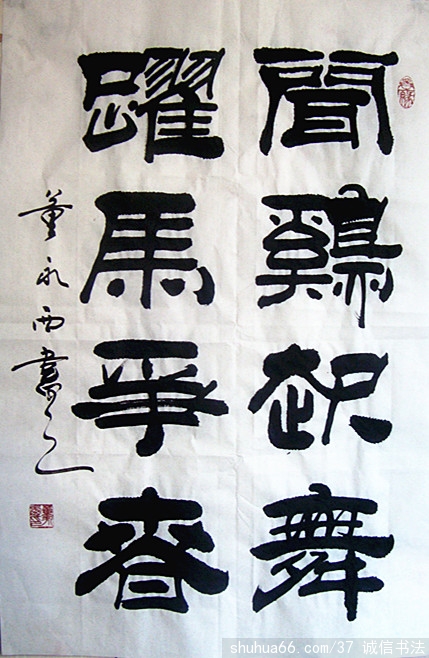 聞鷄起舞
躍馬爭春
董永西書之
shuhua66.com/37 诚信书法